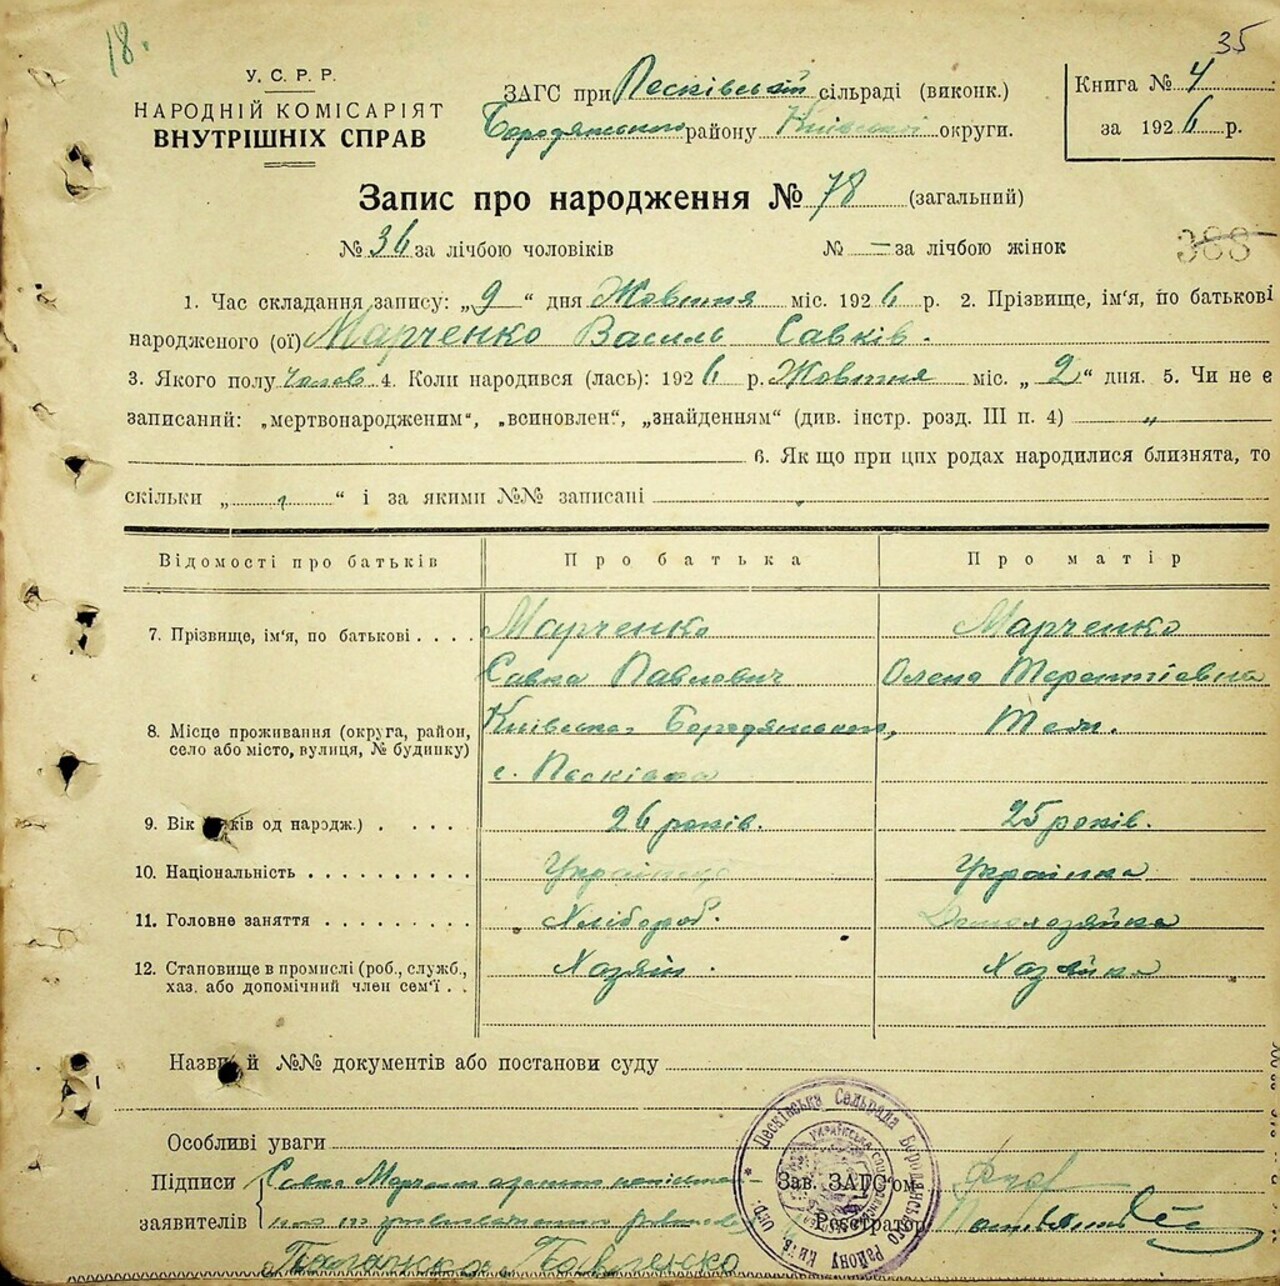 18.
35
У. С. Р. Р.
НАРОДНІЙ КОМІСАРІЯТ
ВНУТРІШНІХ СПРАВ
ЗАГС при Песківській сільраді (виконк.)
Бородянського району Київської округи.
Книга № 4
за 1926 р.
Запис про народження № 78 (загальний)
№ 36 за лічбою чоловіків № = за лічбою жінок
388
1. Час складання запису: „9“ дня Жовтня міс. 1926 р. 2. Прізвище, ім'я, по батькові
народженого (ої) Марченко Василь Савків.
3. Якого полу Чолов 4. Коли народився (лась): 1926 р. Жовтня міс. „2“ дня. 5. Чи не є
записаний: „мертвонародженим“, „всиновлен“, „знайденням“ (див. інстр. розд. III п. 4) „
6. Як що при цих родах народилися близнята, то
скільки „ “ і за якими №№ записані
Відомості про батьків Про батька Про матір
7. Прізвище, ім'я, по батькові . . . . Марченко Марченко
Савка Павлович Олена Терентіевна
8. Місце проживання (округа, район, Київська, Бородянського, Теж.
село або місто, вулиця, № будинку) с. Пєсківка
9. Вік ків од народж.) . . . . 26 років. 25 років.
10. Національність . . . . . . . . . . Українец Українка
11. Головне заняття . . . . . . . . . Хлібороб. Домохозяйка
12. Становище в промислі (роб., служб., Хазяін. Хазяйка
хаз. або допомічний член сем'ї . .
Назви й №№ документів або постанови суду
Особливі уваги
Підписи Савка Марченко
заявителів
Павленко
Зав. ЗАГС'ом
Реєстратор
Песківська Сельрада Бородянського Району Київ. Окр.